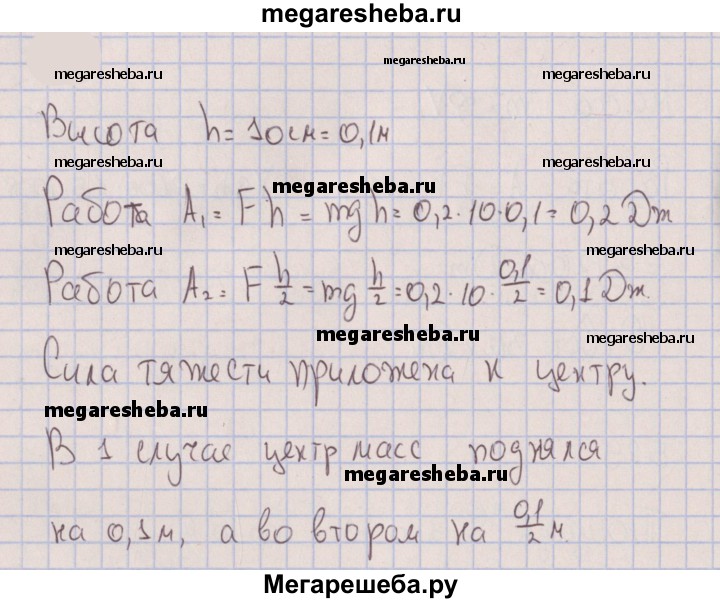 megaresheba.ru
megaresheba.ru
megaresheba.ru megaresheba.ru
Высота h = 10см = 0,1м
megaresheba.ru megaresheba.ru
megaresheba.ru
Работа A₁ = Fh = mgh = 0,2·10·0,1 = 0,2 Дж
megaresheba.ru megaresheba.ru
Работа A₂ = F h/2 = mg h/2 = 0,2·10·0,1/2 = 0,1 Дж.
megaresheba.ru megaresheba.ru
Сила тяжести приложена к центру.
megaresheba.ru
В 1 случае центр масс поднялся
megaresheba.ru
на 0,1м, а во втором на 0,1/2 м.
Мегарешеба.ру